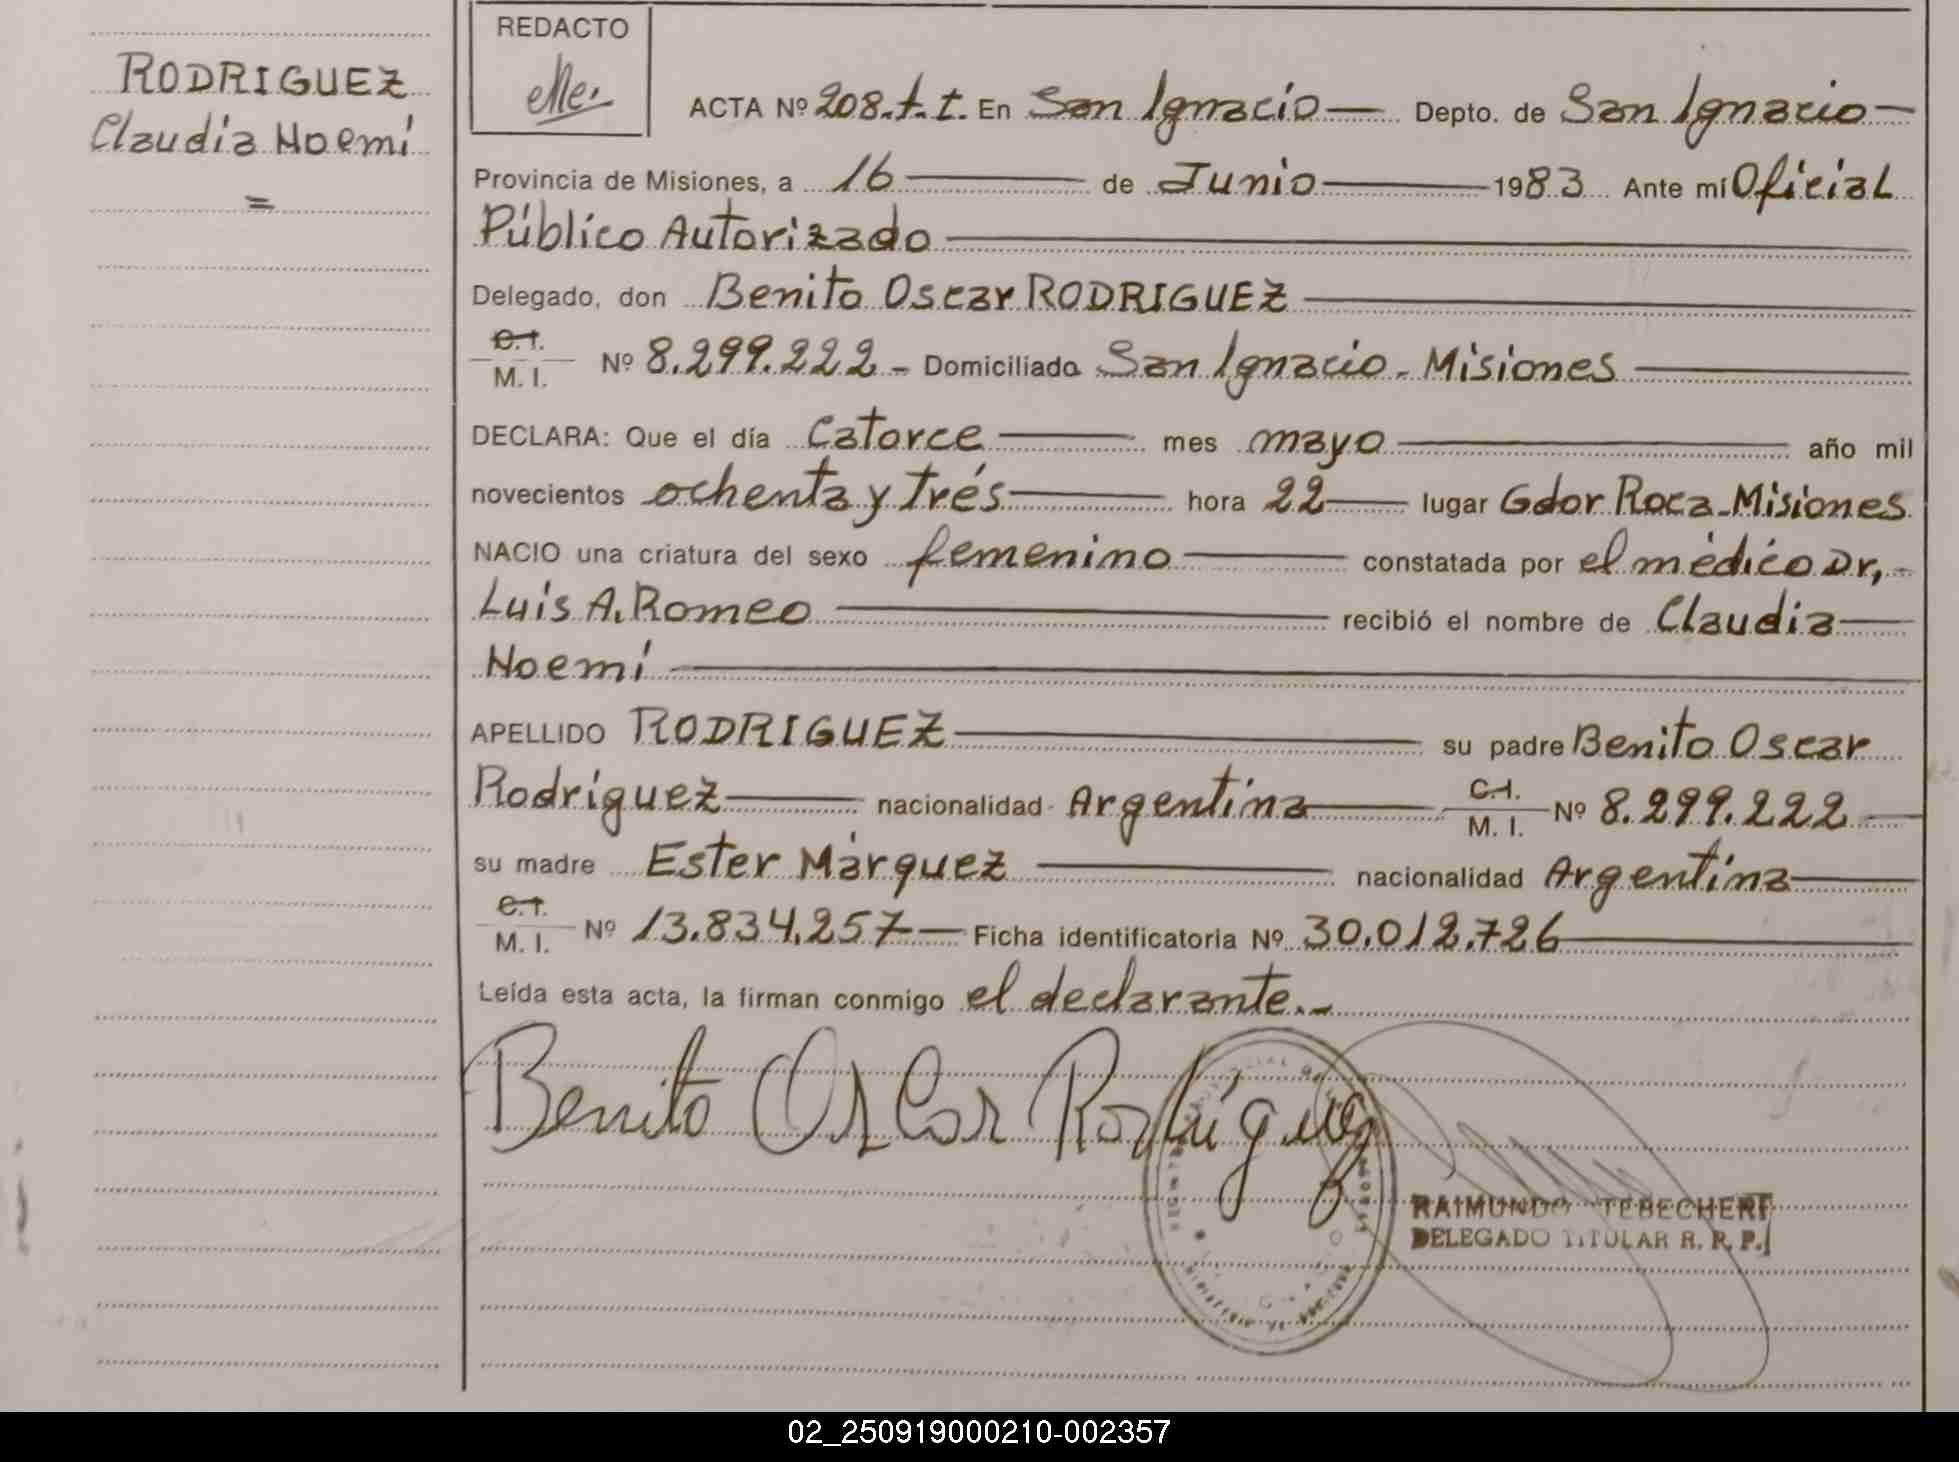 RODRIGUEZ
Claudia Noemí
=
REDACTO
ACTA Nº 208.t.t. En San Ignacio — Depto. de San Ignacio —
Provincia de Misiones, a 16 — de Junio — 1983 Ante mí Oficial
Público Autorizado —
Delegado, don Benito Oscar RODRIGUEZ —
C.I.
M. I. Nº 8.299.222 - Domiciliado San Ignacio - Misiones —
DECLARA: Que el día Catorce — mes mayo — año mil
novecientos ochenta y trés — hora 22 — lugar Gdor Roca-Misiones
NACIO una criatura del sexo femenino — constatada por el médico Dr,-
Luis A. Romeo — recibió el nombre de Claudia —
Noemí —
APELLIDO RODRIGUEZ — su padre Benito Oscar
Rodríguez — nacionalidad Argentina — C.I. M. I. Nº 8.299.222 —
su madre Ester Márquez — nacionalidad Argentina —
C.I.
M. I. Nº 13.834.257 — Ficha identificatoria Nº 30.012.726 —
Leída esta acta, la firman conmigo el declarante.-
Benito Oscar Rodriguez
RAIMUNDO TEBECHERI
DELEGADO TITULAR R. R. P.
02_250919000210-002357